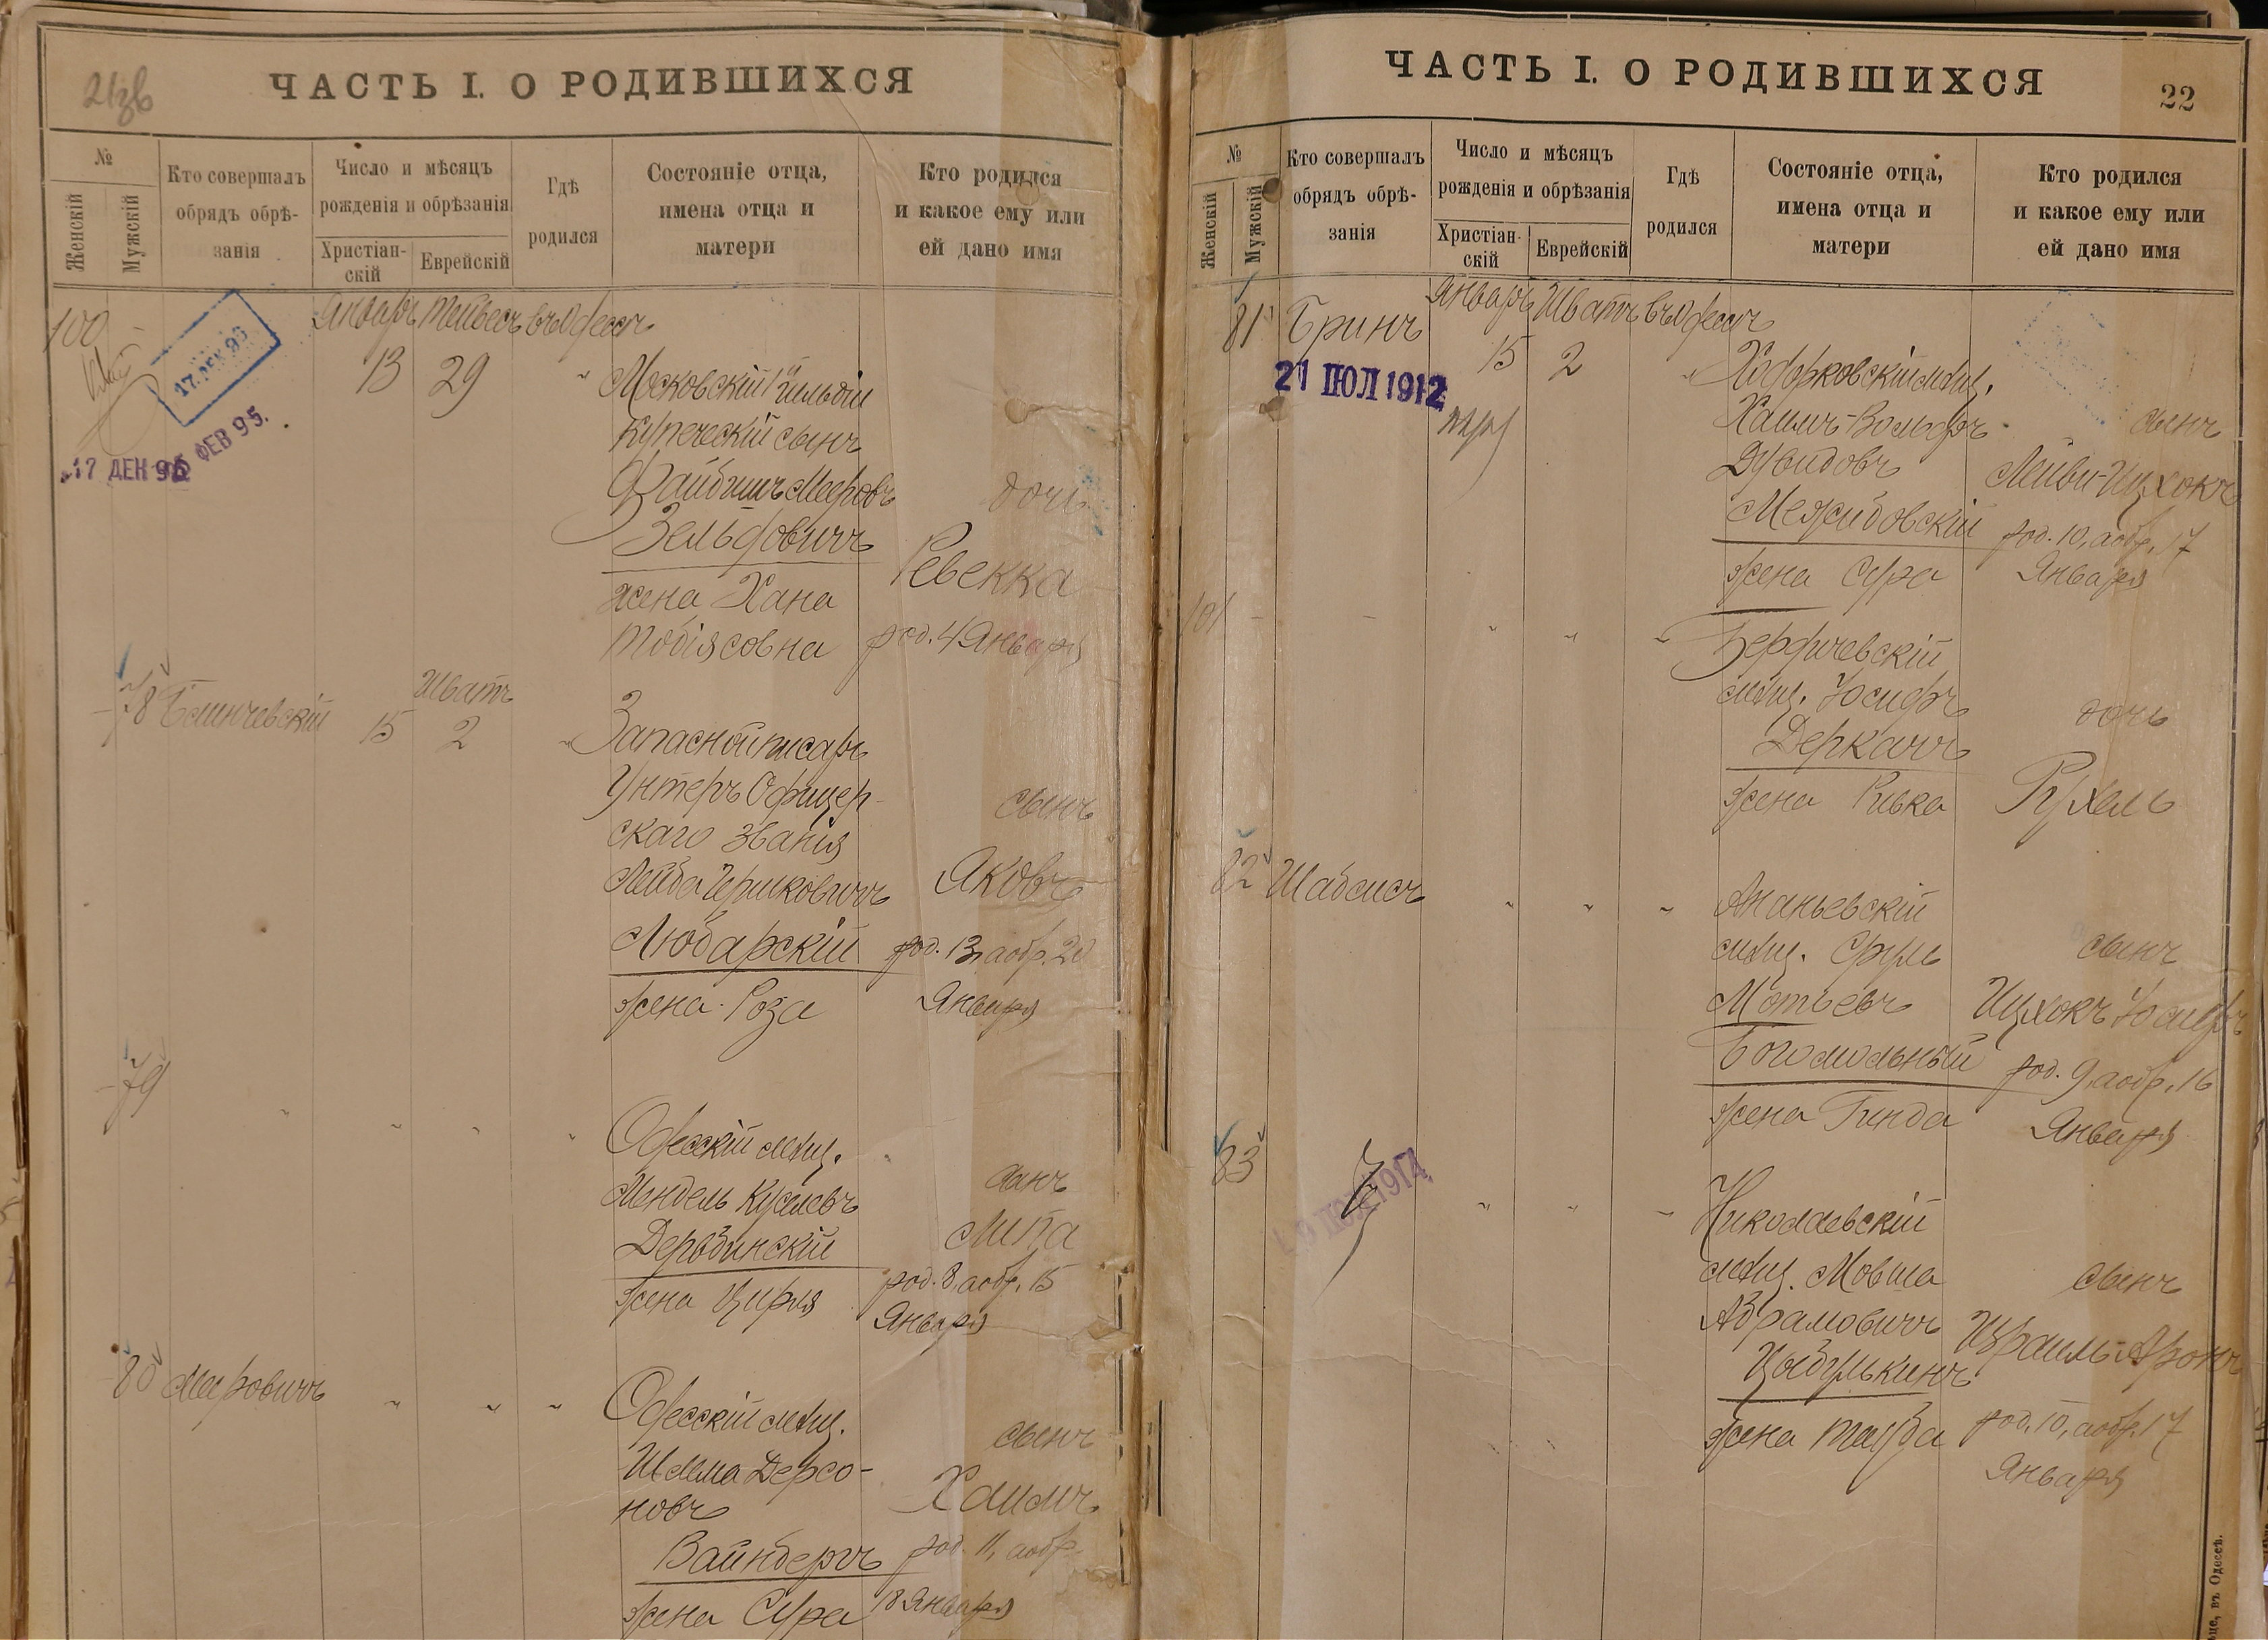 21зв
ЧАСТЬ I. О РОДИВШИХСЯ
№
Женскій
Мужскій
Кто совершалъ
обрядъ обрѣ-
занія
Число и мѣсяцъ
рожденія и обрѣзанія
Христіан-
скій
Еврейскій
Гдѣ
родился
Состояніе отца,
имена отца и
матери
Кто родился
и какое ему или
ей дано имя
100 - Январь Тейвесъ въ Одессѣ
17. ДЕК. 96
13 29 " Московскій 1й гильдіи
купеческій сынъ
ФЕВ 95.
17 ДЕК 96
Файбишъ Мееровъ дочь
Зельдовичъ
Ревекка
жена Хана
Тобіясовна род. 4 Января
Шватъ
78 Блинчевскій 15 2 " Запасной писарь
Унтеръ Офицер-
сынъ
скаго званія
Лейба Гершковичъ Яковъ
Любарскій род. 13, а обр. 20
жена Роза Января
79 " " " " Одесскій мѣщ.
сынъ
Мендель Куселевъ
Липа
Дербдинскій
род. 8, а обр. 15
жена Ципря
Января
80 Меировичъ " " " Одесскій мѣщ.
сынъ
Шлема Дерсо-
новъ Хаимъ
Вайнбергъ род. 11, а обр.
жена Сура 18 Января
ЧАСТЬ I. О РОДИВШИХСЯ
22
№
Женскій
Мужскій
Кто совершалъ
обрядъ обрѣ-
занія
Число и мѣсяцъ
рожденія и обрѣзанія
Христіан-
скій
Еврейскій
Гдѣ
родился
Состояніе отца,
имена отца и
матери
Кто родился
и какое ему или
ей дано имя
81 Бринъ Январь Шватъ въ Одессѣ
15 2 " Ходорковскій мѣщ.
21 ІЮЛ 1912
Хаимъ-Вольфъ сынъ
Дувидовъ Лейви-Ицхокъ
Межибовскій род. 10, а обр. 17
жена Сура Января
101 - - " " " Бердичевскій
мѣщ. Іосифъ дочь
Деркачъ
жена Ривка Рухель
82 Шабсисъ " " " Ананьевскій
мѣщ. Сруль сынъ
Мотьевъ Ицхокъ Іосифъ
Богомольный род. 9, а обр. 16
жена Гинда Января
83 " " " Николаевскій
мѣщ. Мовша сынъ
Абрамовичъ Израиль-Аронъ
Цыбулькинъ
жена Тауба род. 10, а обр. 17
Января
въ Одессѣ.